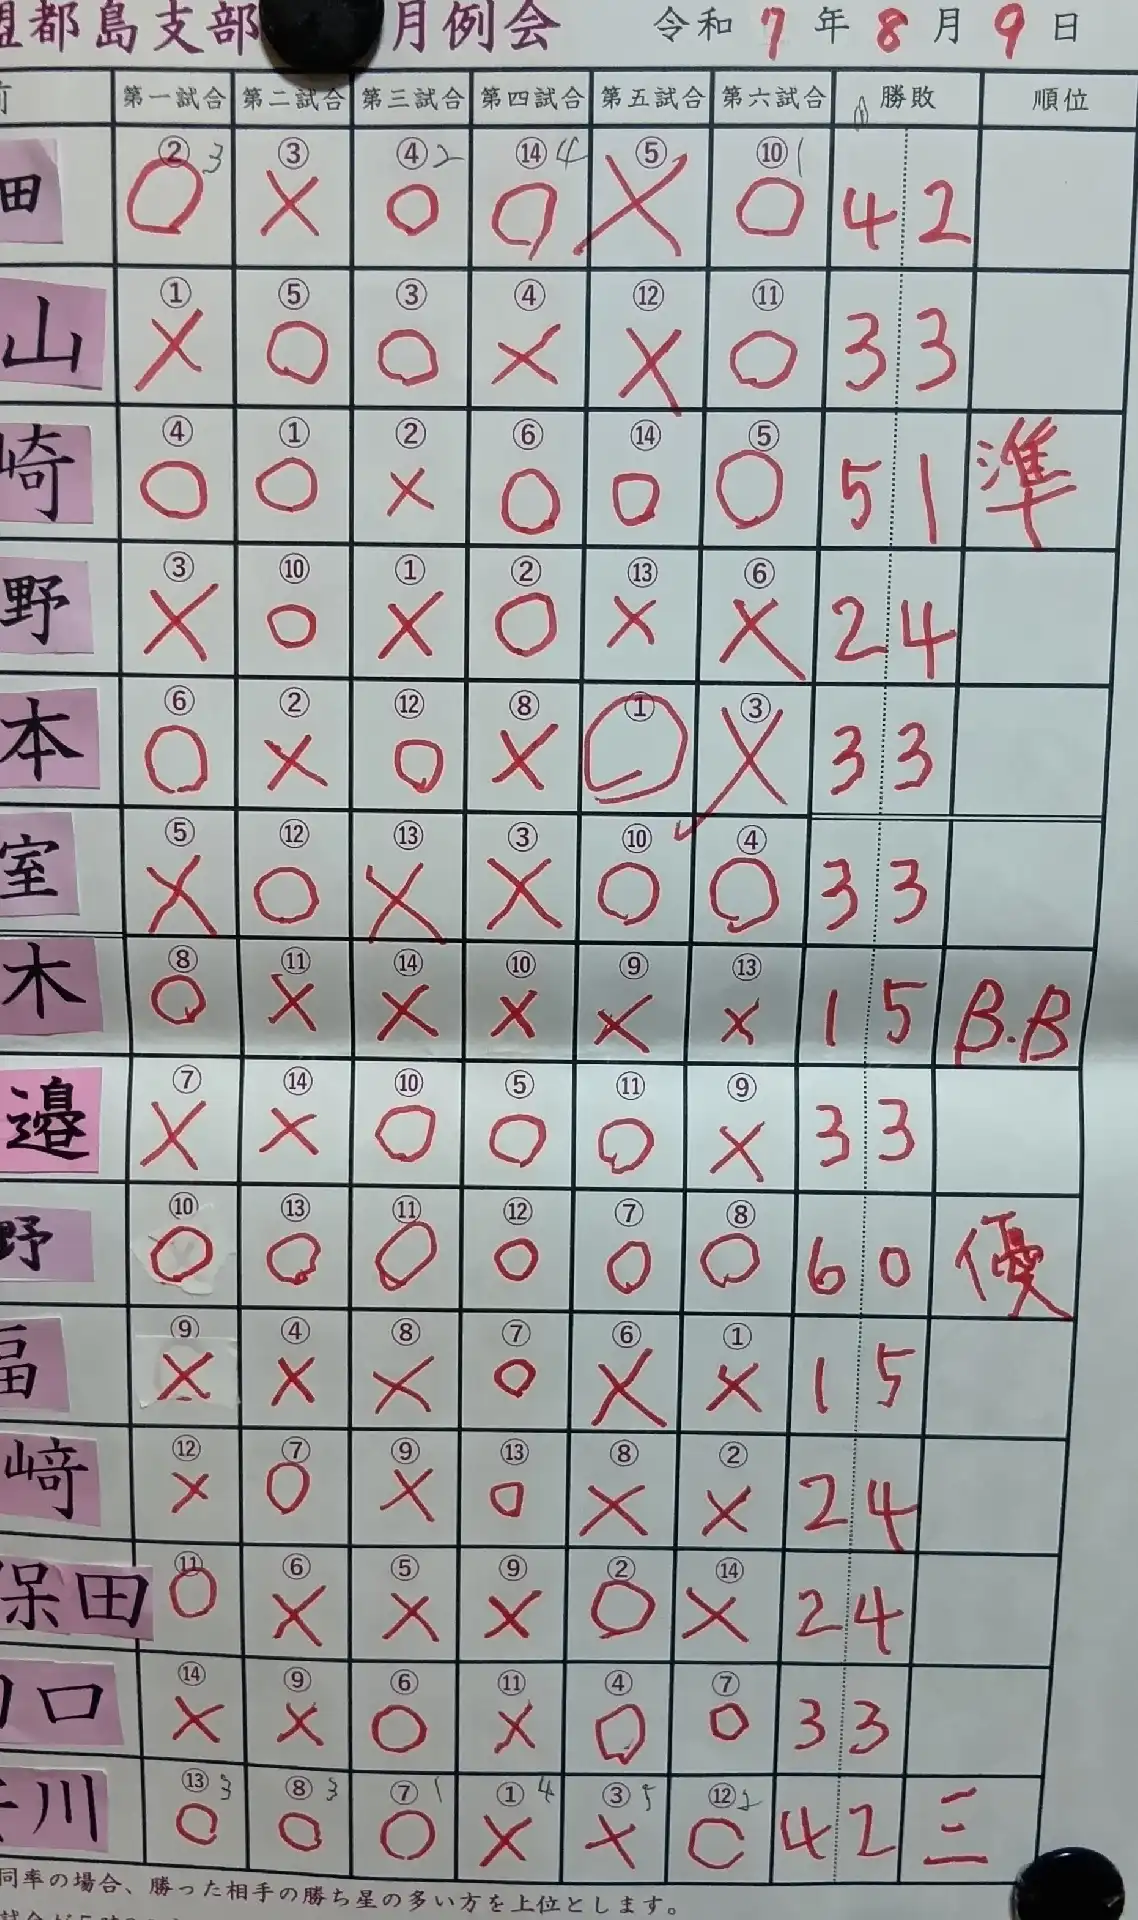 都島支部 月例会 令和 7 年 8 月 9 日
第一試合 第二試合 第三試合 第四試合 第五試合 第六試合 勝敗 順位
② 3 ③ ④ 2 ⑭ 4 ⑤ ⑩ 1
田 ○ × ○ ○ × ○ 4 2
① ⑤ ③ ④ ⑫ ⑪
山 × ○ ○ × × ○ 3 3
④ ① ② ⑥ ⑭ ⑤
崎 ○ ○ × ○ ○ ○ 5 1 準
③ ⑩ ① ② ⑬ ⑥
野 × ○ × ○ × × 2 4
⑥ ② ⑫ ⑧ ① ③
本 ○ × ○ × ○ × 3 3
⑤ ⑫ ⑬ ③ ⑩ ④
室 × ○ × × ○ ○ 3 3
⑧ ⑪ ⑭ ⑩ ⑨ ⑬
木 ○ × × × × × 1 5 B.B
⑦ ⑭ ⑩ ⑤ ⑪ ⑨
邉 × × ○ ○ ○ × 3 3
⑩ ⑬ ⑪ ⑫ ⑦ ⑧
野 ○ ○ ○ ○ ○ ○ 6 0 優
⑨ ④ ⑧ ⑦ ⑥ ①
× × × ○ × × 1 5
⑫ ⑦ ⑨ ⑬ ⑧ ②
﨑 × ○ × ○ × × 2 4
⑪ ⑥ ⑤ ⑨ ② ⑭
保田 ○ × × × ○ × 2 4
⑭ ⑨ ⑥ ⑪ ④ ⑦
口 × × ○ × ○ ○ 3 3
⑬ 3 ⑧ 3 ⑦ 1 ① 4 ③ 5 ⑫ 2
川 ○ ○ ○ × × ○ 4 2 三
同率の場合、勝った相手の勝ち星の多い方を上位とします。